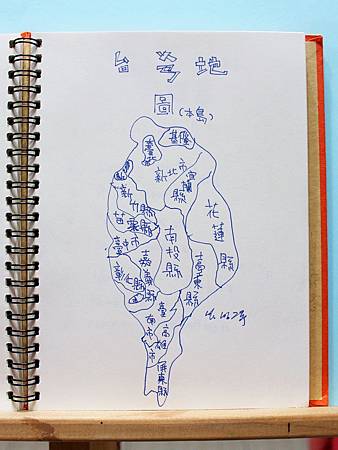 台灣地
圖(本島)
基隆
臺北
新北市
宜蘭縣
新竹縣
花蓮縣
苗栗縣
臺中市
南投縣
彰化縣
嘉義縣
臺東縣
臺南市
高雄市
屏東縣